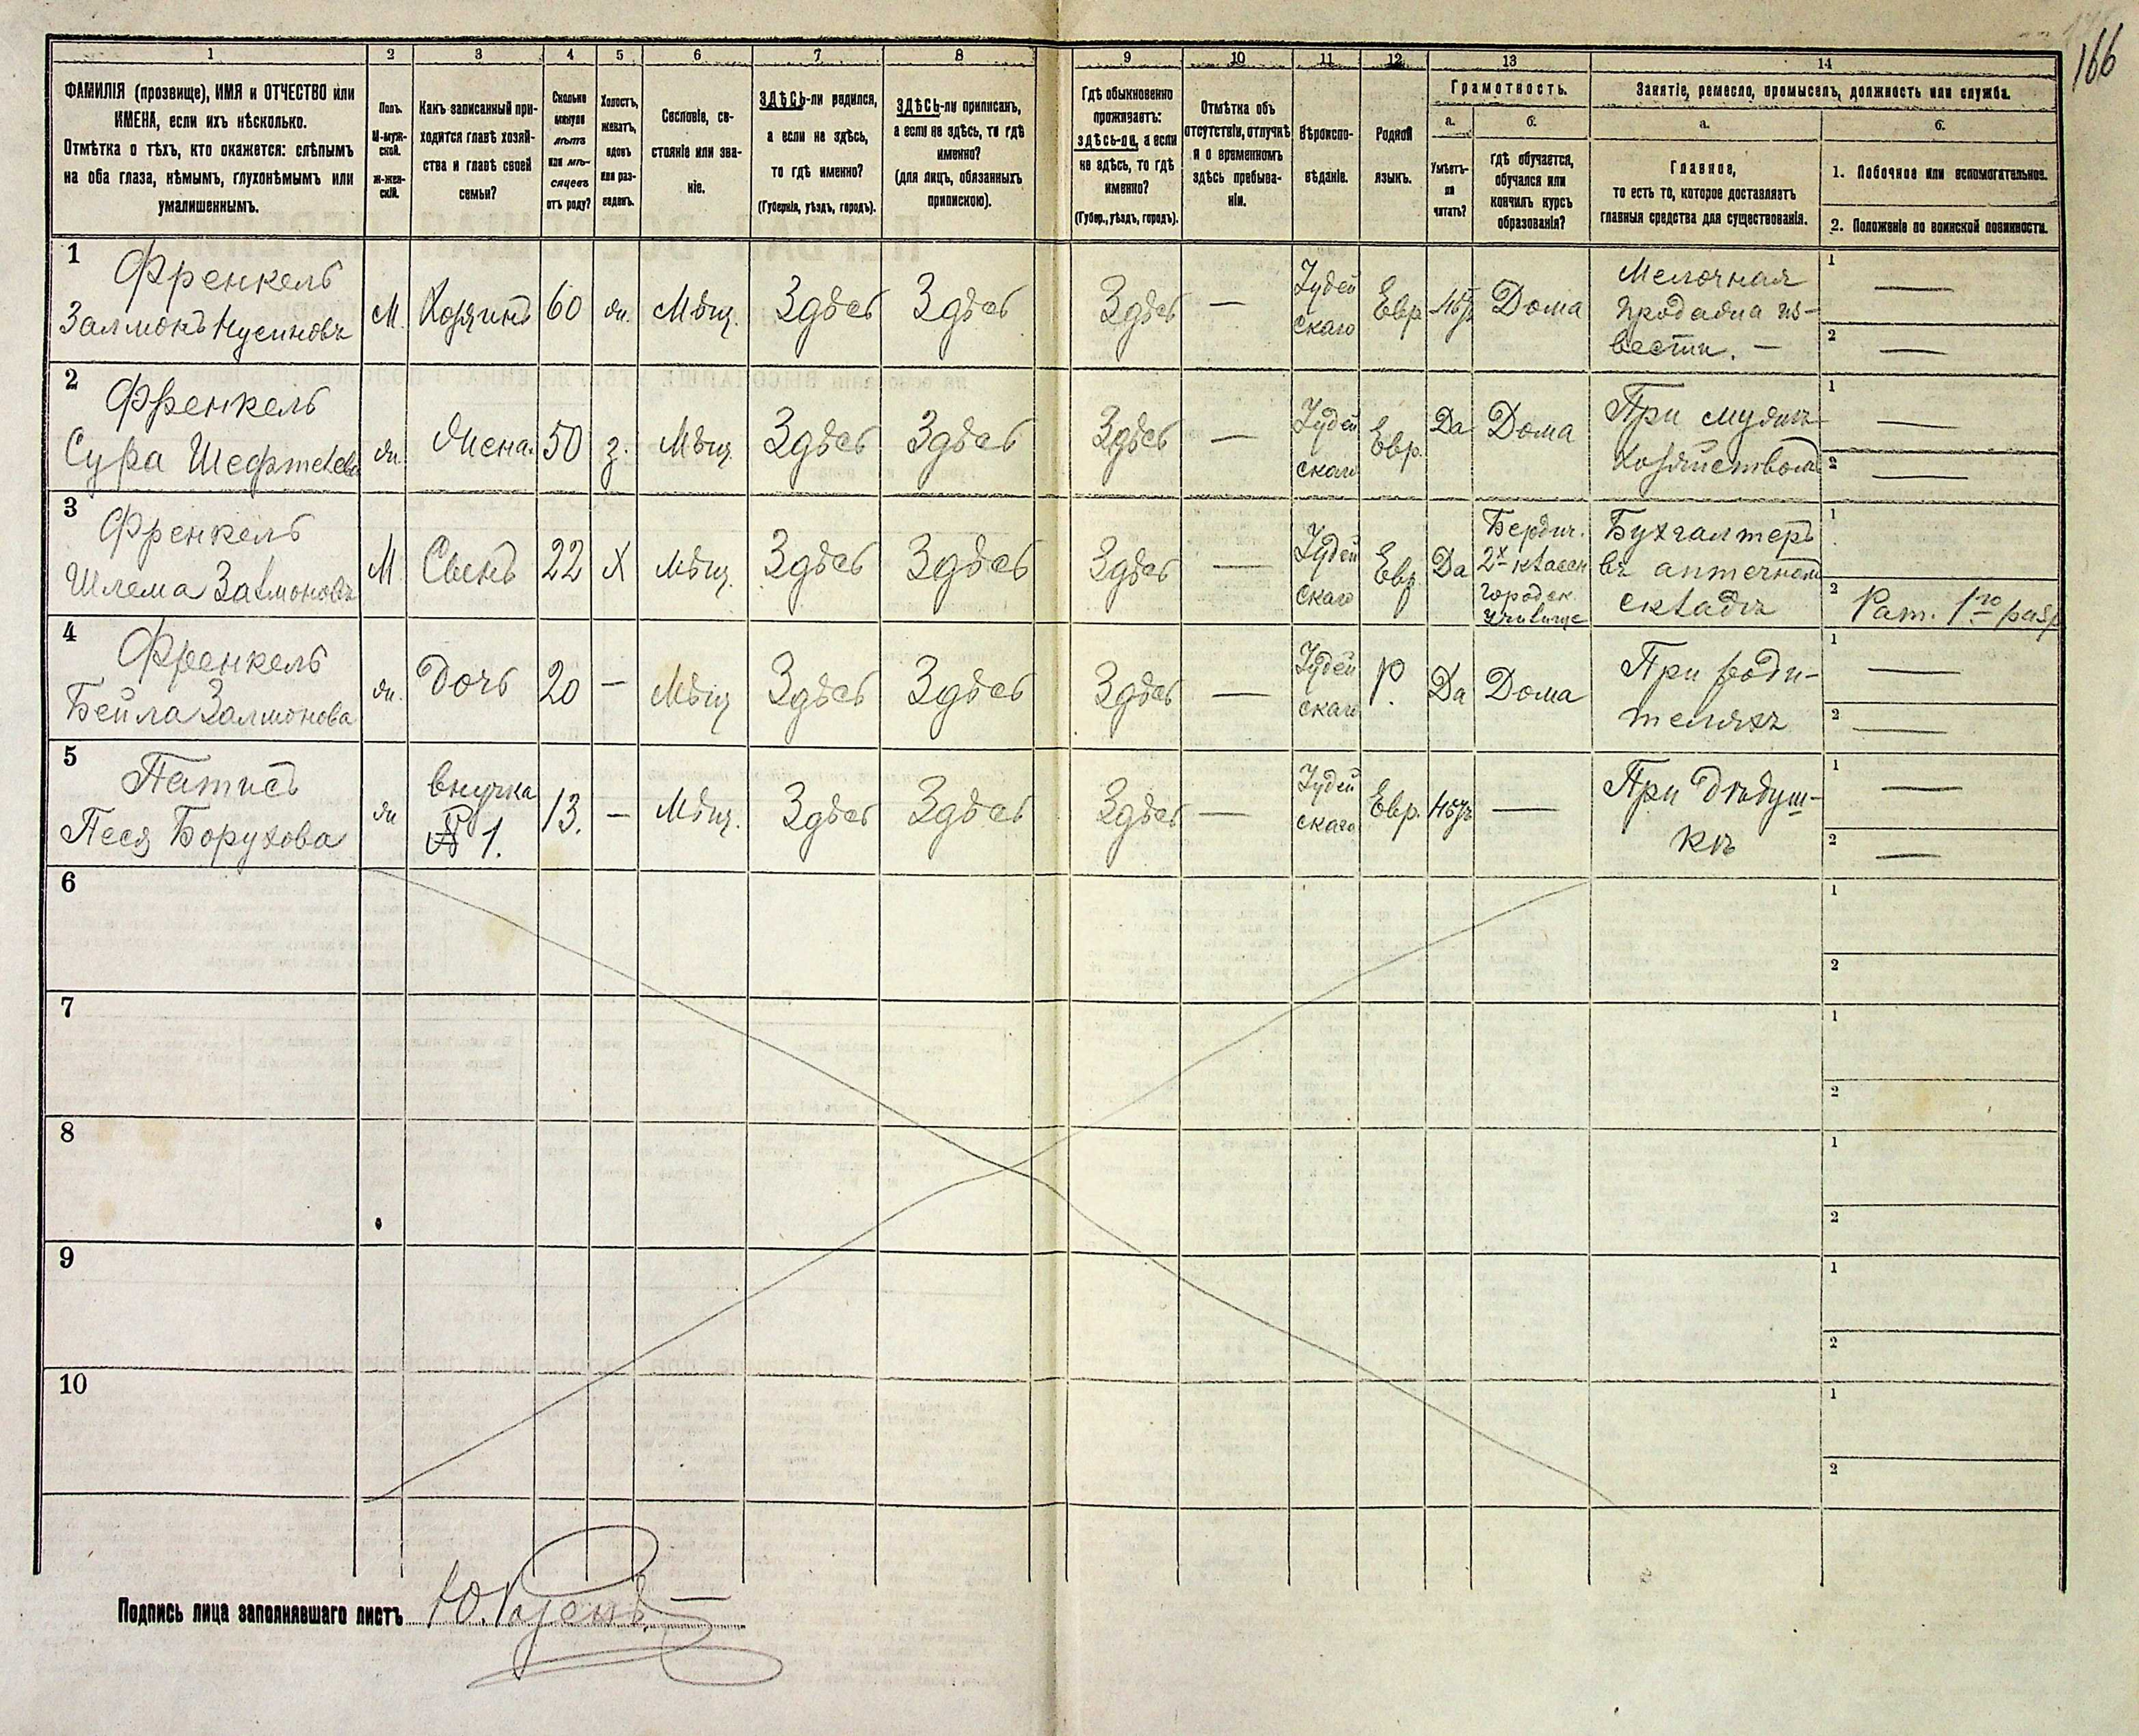 166
1 2 3 4 5 6 7 8 9 10 11 12 13 14
ФАМИЛІЯ (прозвище), ИМЯ и ОТЧЕСТВО или
ИМЕНА, если ихъ нѣсколько.
Отмѣтка о тѣхъ, кто окажется: слѣпымъ
на оба глаза, нѣмымъ, глухонѣмымъ или
умалишеннымъ.
Полъ.
М-муж-
ской.
Ж-жен-
скій.
Какъ записанный при-
ходится главѣ хозяй-
ства и главѣ своей
семьи?
Сколько
минуло
лѣтъ
или мѣ-
сяцевъ
отъ роду?
Холостъ,
женатъ,
вдовъ
или раз-
веденъ.
Сословіе, со-
стояніе или зва-
ніе.
ЗДѢСЬ-ли родился,
а если не здѣсь,
то гдѣ именно?
(Губернія, уѣздъ, городъ).
ЗДѢСЬ-ли приписанъ,
а если не здѣсь, то гдѣ
именно?
(для лицъ, обязанныхъ
припискою).
Гдѣ обыкновенно
проживаетъ:
здѣсь-ли, а если
не здѣсь, то гдѣ
именно?
(Губер., уѣздъ, городъ).
Отмѣтка объ
отсутствіи, отлучкѣ
и о временномъ
здѣсь пребыва-
ніи.
Вѣроиспо-
вѣданіе.
Родной
языкъ.
Грамотность.
а.
Умѣетъ-
ли
читать?
б.
гдѣ обучается,
обучался или
кончилъ курсъ
образованія?
Занятіе, ремесло, промыселъ, должность или служба.
а.
Главное,
то есть то, которое доставляетъ
главныя средства для существованія.
б.
1. Побочное или вспомогательное.
2. Положеніе по воинской повинности.
1
Френкель
Залмонъ Нусиновъ
М.
Хозяинъ
60
Мѣщ.
Здѣсь
Здѣсь
Здѣсь
—
Іудей
скаго
Евр
Дома
Мелочная
продажа из-
вести. —
1 —
2 —
2
Френкель
Сура
ж.
Жена.
50
з.
Мѣщ.
Здѣсь
Здѣсь
Здѣсь
—
Іудей
скаго
Евр.
Да
Дома
При мужѣ
хозяйство
1 —
2 —
3
Френкель
Шлема Залмоновъ
М
Сынъ
22
Х
Мѣщ.
Здѣсь
Здѣсь
Здѣсь
—
Іудей
скаго
Евр
Да
Бердич.
2х класен
городск.
училище
Бухгалтеръ
въ аптечном
складѣ
1
2 Рат. 1го разр
4
Френкель
Бейла Залмонова
ж.
Дочь
20
—
Мѣщ
Здѣсь
Здѣсь
Здѣсь
—
Іудей
скаго
Р.
Да
Дома
При роди-
теляхъ
1 —
2 —
5
Песя Борухова
ж
внучка
№ 1.
13.
—
Мѣщ.
Здѣсь
Здѣсь
Здѣсь
—
Іудей
скаго
Евр.
—
При дѣдуш-
кѣ
1 —
2 —
6
1
2
7
1
2
8
1
2
9
1
2
10
1
2
Подпись лица заполнявшаго листъ